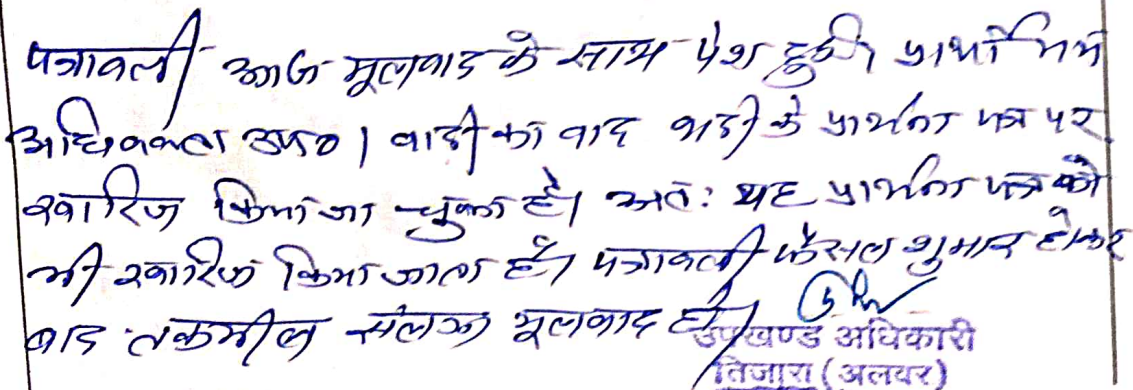 पत्रावली आज मूलवाद के साथ पेश हुई। प्रार्थी मय
अधिवक्ता उप० । वादी का वाद वादी के प्रार्थना पत्र पर
खारिज किया जा चुका है। अतः यह प्रार्थना पत्र को
भी खारिज किया जाता है। पत्रावली फैसल शुमार होकर
बाद तकमील संलग्न मूलवाद हो।
उपखण्ड अधिकारी
तिजारा (अलवर)